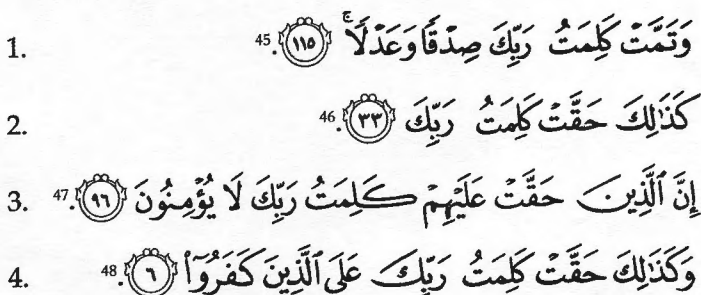 1. وَتَمَّتْ كَلِمَتُ رَبِّكَ صِدْقًا وَعَدْلًا ۚ ﴿١١٥﴾ 45.
2. كَذَٰلِكَ حَقَّتْ كَلِمَتُ رَبِّكَ ﴿٣٣﴾ 46.
3. إِنَّ ٱلَّذِينَ حَقَّتْ عَلَيْهِمْ كَلِمَتُ رَبِّكَ لَا يُؤْمِنُونَ ﴿٩٦﴾ 47.
4. وَكَذَٰلِكَ حَقَّتْ كَلِمَتُ رَبِّكَ عَلَى ٱلَّذِينَ كَفَرُوٓا۟ ﴿٦﴾ 48.